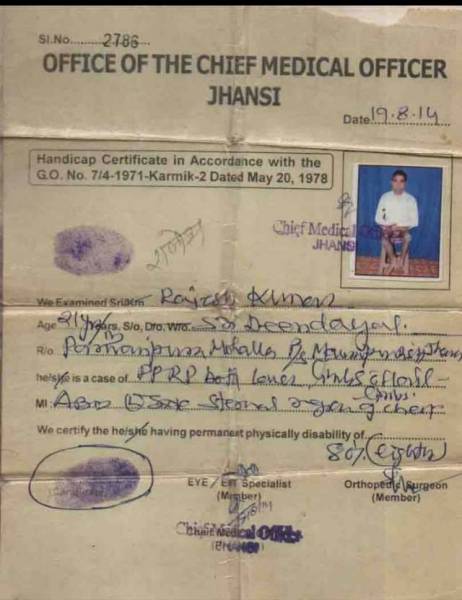 Sl.No. 2786
OFFICE OF THE CHIEF MEDICAL OFFICER
JHANSI
Date 19.8.14
Handicap Certificate in Accordance with the
G.O. No. 7/4-1971-Karmik-2 Dated May 20, 1978
Chief Medical
JHANSI
We Examined Sri/Km Rajesh Kumar
Age 21 Years, S/o, D/o, W/o. Sri Deendayal.
R/o Mohalla
he/she is a case of PPRP both lower limbs
MI
We certify the he/she having permanent physically disability of
80% (eighty)
EYE / ENT Specialist
(Member)
Orthopedic Surgeon
(Member)
Chief Medical Officer
(JHANSI)